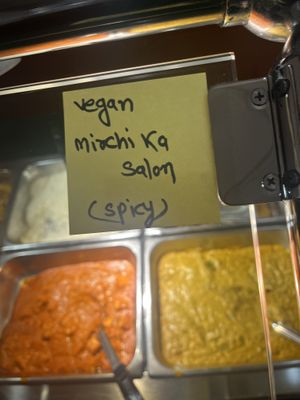 vegan
mirchi ka
salon
(spicy)